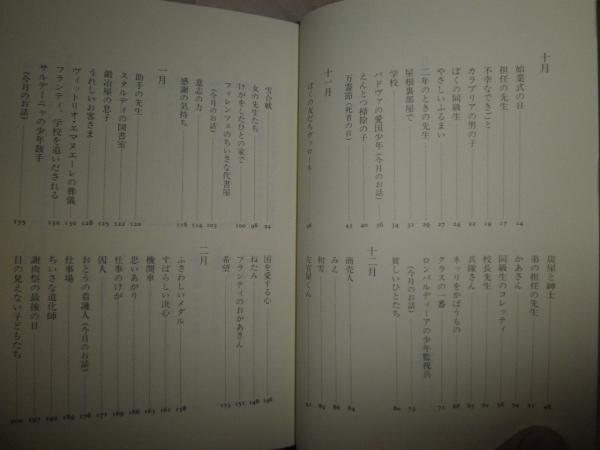 十月
始業式の日 14
担任の先生 17
不幸なできごと 20
カラブリアの男の子 22
ぼくの同級生 24
やさしいふるまい 27
二年のときの先生 29
屋根裏部屋で 32
学校 34
パドヴァの愛国少年(今月のお話) 36
えんとつ掃除の子 40
十一月
万霊節(死者の日) 43
ぼくの友だちガッローネ 46
炭屋と紳士 48
弟の担任の先生 51
かあさん 54
同級生のコレッティ 56
校長先生 62
兵隊さん 65
ネッリをかばうもの 68
クラスの一番 71
ロンバルディーアの少年監視兵
(今月のお話) 73
貧しいひとたち 80
十二月
商売人 84
みえ 86
初雪 89
左官屋くん 91
雪合戦 94
女の先生たち 98
けがをしたひとの家で 100
フィレンツェのちいさな代書屋
(今月のお話) 103
意志の力 114
感謝の気持ち 116
一月
助手の先生 120
スタルディの図書室 122
鍛冶屋の息子 125
うれしいお客さま 128
ヴィットリオ・エマヌエーレの葬儀 130
フランティ、学校を追いだされる
サルデーニャの少年鼓手
(今月のお話) 135
国を愛する心 146
ねたみ 148
フランティのおかあさん 151
希望 153
二月
ふさわしいメダル 158
すばらしい決心 161
機関車 163
思いあがり 166
仕事のけが 168
囚人 171
おとうの看護人(今月のお話) 176
仕事場 189
ちいさな道化師 192
謝肉祭の最後の日 197
目の見えない子どもたち 200